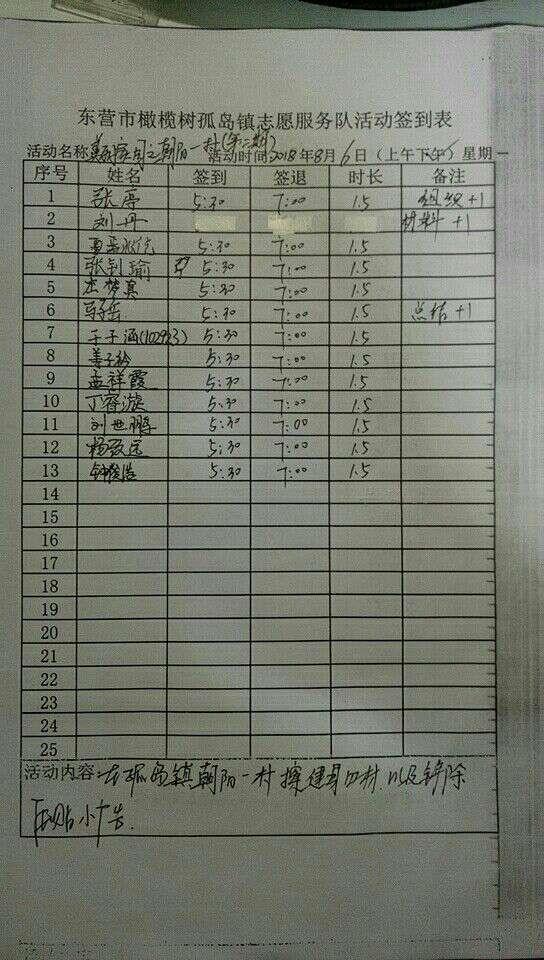 东营市橄榄树孤岛镇志愿服务队活动签到表
活动名称 之朝阳一村(第二期) 活动时间2018年8月6日（上午下午）星期一
序号 姓名 签到 签退 时长 备注
1 张 5:30 7:00 1.5 组织+1
2 刘丹 材料+1
3 5:30 7:00 1.5
4 张钊瑜 5:30 7:00 1.5
5 梦真 5:30 7:00 1.5
6 5:30 7:00 1.5 总结+1
7 于子涵 5:30 7:00 1.5
8 姜子 5:30 7:00 1.5
9 孟祥霞 5:30 7:00 1.5
10 丁睿 5:30 7:00 1.5
11 刘世鹏 5:30 7:00 1.5
12 杨致远 5:30 7:00 1.5
13 钟俊浩 5:30 7:00 1.5
14
15
16
17
18
19
20
21
22
23
24
25
活动内容:在孤岛镇朝阳一村擦健身器材,以及铲除
乱贴小广告.